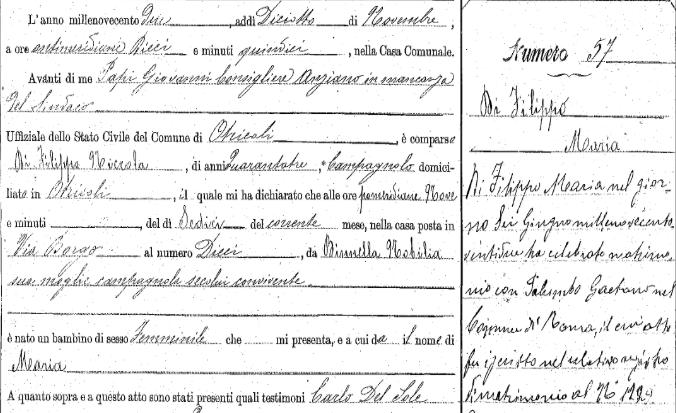 L'anno millenovecento Due, addi Diciotto di Novembre,
a ore antimeridiane Dieci e minuti quindici, nella Casa Comunale.
Avanti di me Papi Giovanni Consigliere Anziano in mancanza
del Sindaco
Uffiziale dello Stato Civile del Comune di Otricoli, è comparso
Di Filippo Nicola, di anni Quarantatre, Campagnolo domici-
liato in Otricoli, il quale mi ha dichiarato che alle ore pomeridiane Nove
e minuti, del dì Sedici del corrente mese, nella casa posta in
Via Borgo al numero Dieci, da Minnella Nobilia
sua moglie campagnola secolui convivente
è nato un bambino di sesso Femminile che mi presenta, e a cui da il nome di
Maria
A quanto sopra e a questo atto sono stati presenti quali testimoni Carlo Del Sole
Numero 57
Di Filippo
Maria
Di Filippo Maria nel gior-
no Sei Giugno millenovecento
ventidue ha celebrato matrimo-
nio con Palombo Gaetano nel
Comune di Roma, il cui atto
fu iscritto nel relativo registro
di matrimonio al N.